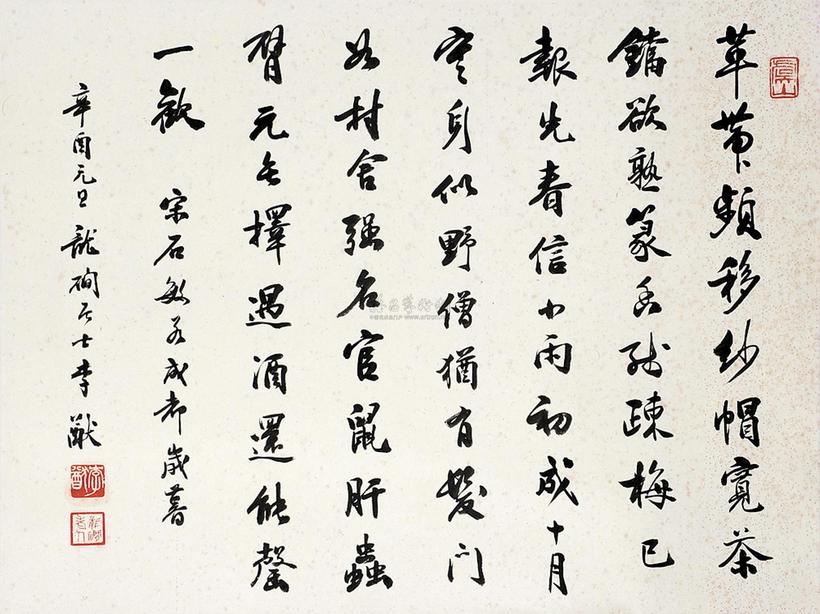 革帶頻移紗帽寬茶
鐺欲熟篆香殘疎梅已
報先春信小雨初成十月
寒身似野僧猶有髮門
如村舍强名官鼠肝蟲
臂元無擇遇酒還能罄
一歡 宋石敏若成都歲暮
辛酉元旦 龍磵居士李猷